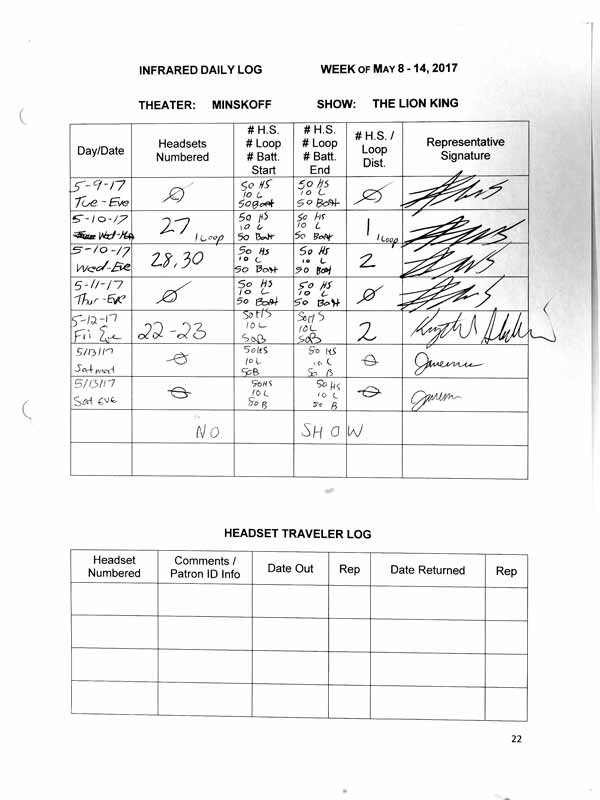 INFRARED DAILY LOG WEEK OF MAY 8 - 14, 2017
THEATER: MINSKOFF SHOW: THE LION KING
Day/Date
Headsets
Numbered
# H.S.
# Loop
# Batt.
Start
# H.S.
# Loop
# Batt.
End
# H.S. /
Loop
Dist.
Representative
Signature
5-9-17
Tue-Eve
Ø
50 HS
10 L
50 Batt
50 HS
10 L
50 Batt
Ø
5-10-17
Wed-Mat
27
1 Loop
50 HS
10 L
50 Batt
50 HS
10 L
50 Batt
1
1 Loop
5-10-17
Wed-Eve
28,30
50 HS
10 L
50 Batt
50 HS
10 L
50 Batt
2
5-11-17
Thur-Eve
Ø
50 HS
10 L
50 Batt
50 HS
10 L
50 Batt
Ø
5-12-17
Fri Eve
22-23
50HS
10L
50B
50HS
10L
50B
2
5/13/17
Sat mat
Ø
50HS
10L
50B
50 HS
10 L
50 B
Ø
5/13/17
Sat EVE
Ø
50HS
10L
50 B
50 HS
10 L
50 B
Ø
NO SHOW
HEADSET TRAVELER LOG
Headset
Numbered
Comments /
Patron ID Info
Date Out
Rep
Date Returned
Rep
22